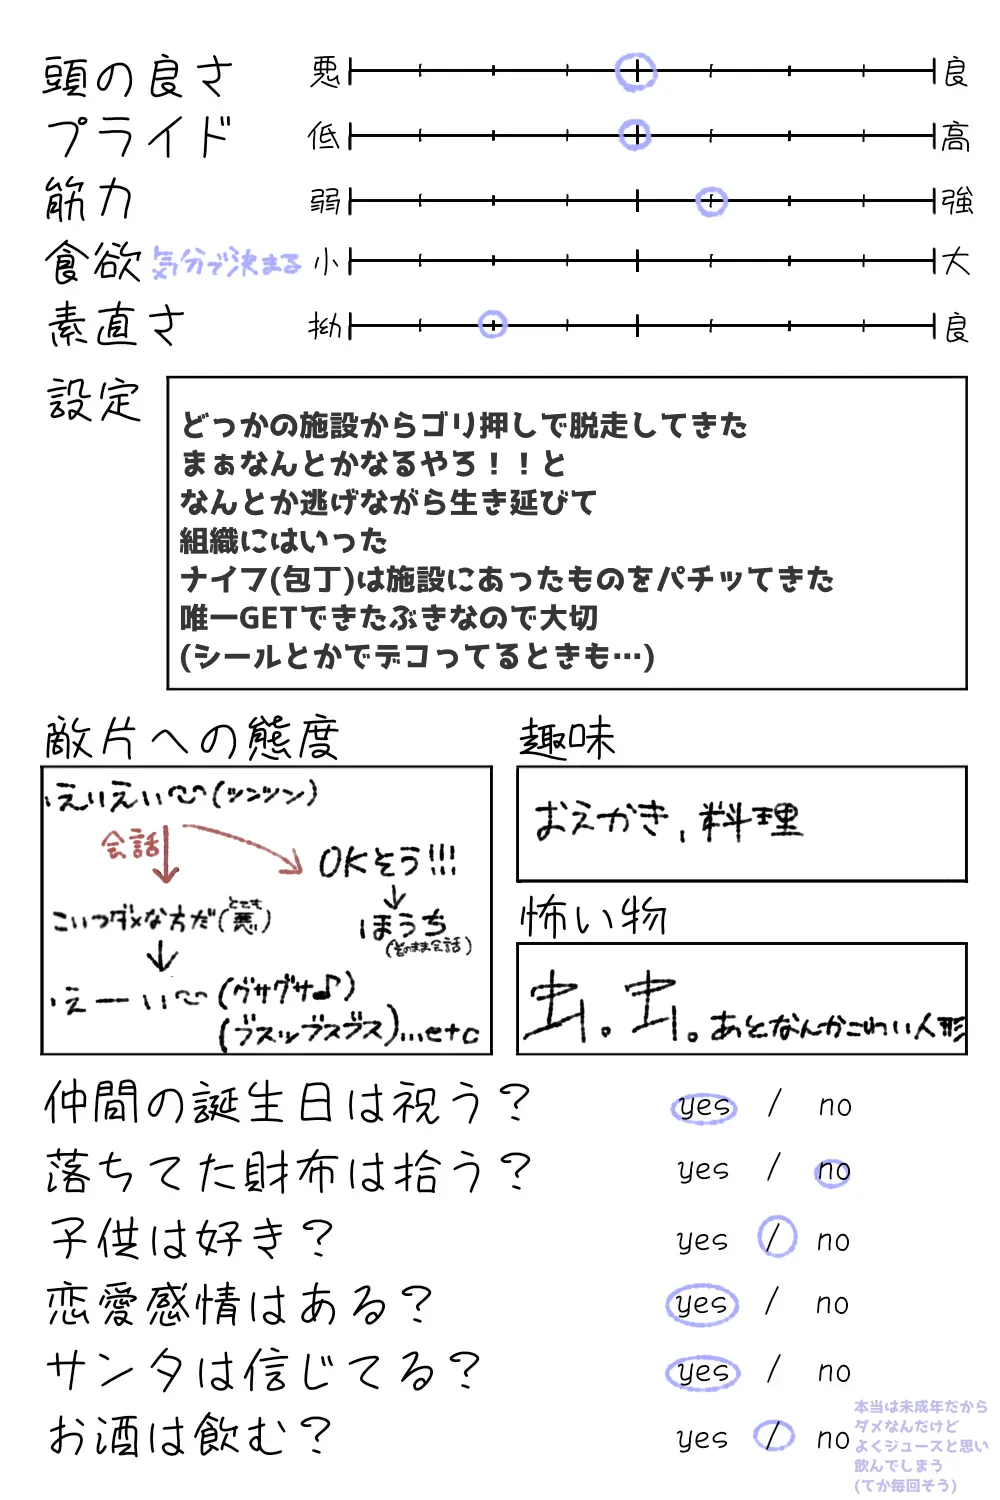 頭の良さ 悪 良
プライド 低 高
筋力 弱 強
食欲 気分で決まる 小 大
素直さ 拗 良
設定
どっかの施設からゴリ押しで脱走してきた
まぁなんとかなるやろ！！と
なんとか逃げながら生き延びて
組織にはいった
ナイフ(包丁)は施設にあったものをパチッてきた
唯一GETできたぶきなので大切
(シールとかでデコってるときも…)
敵片への態度
えいえい(ツンツン)
会話
OKそう!!!
こいつダメな方だ(とても悪い)
ほうち
(そのまま会話)
えーい(グサグサ♪)
(ブスッブスブス)...etc
趣味
おえかき、料理
怖い物
虫。虫。あとなんかこわい人形
仲間の誕生日は祝う？ yes / no
落ちてた財布は拾う？ yes / no
子供は好き？ yes / no
恋愛感情はある？ yes / no
サンタは信じてる？ yes / no
お酒は飲む？ yes / no
本当は未成年だから
ダメなんだけど
よくジュースと思い
飲んでしまう
(てか毎回そう)